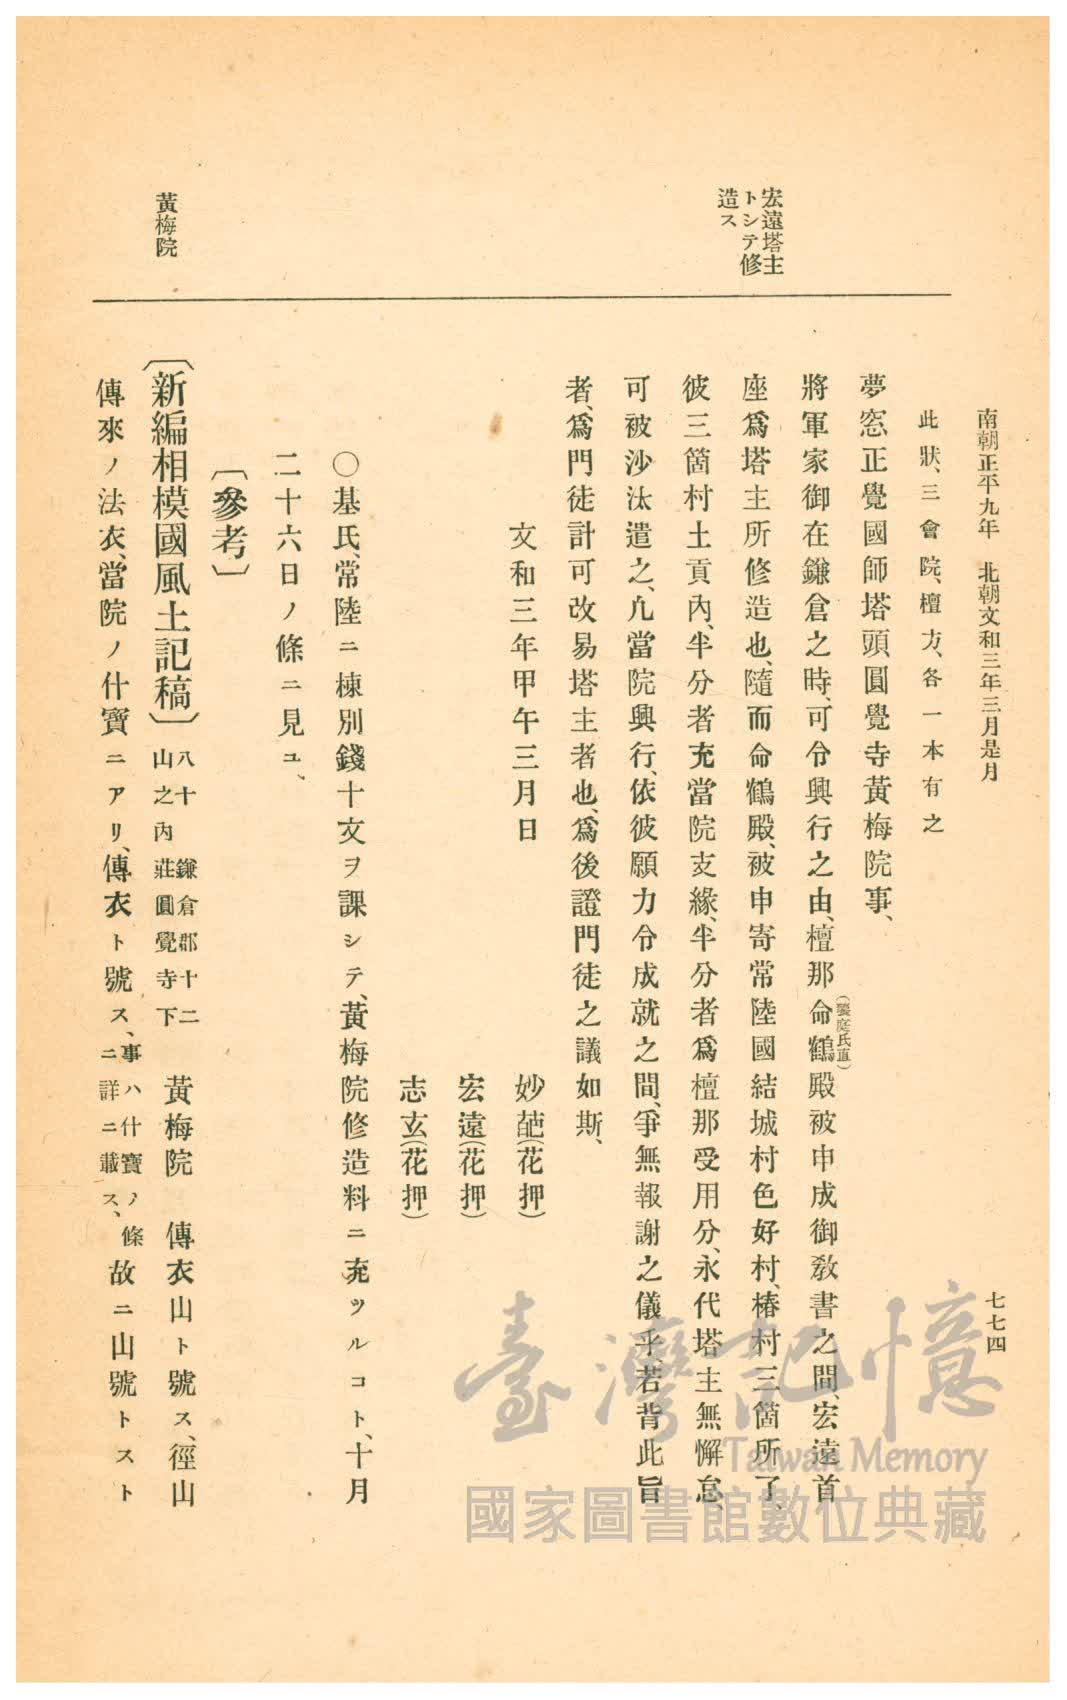 南朝正平九年　北朝文和三年三月是月
七七四
宏遠塔主
トシテ修
造ス
黃梅院
此狀、三會院、檀方、各一本有之
夢窓正覺國師塔頭、圓覺寺黃梅院事、
將軍家御在鎌倉之時、可令興行之由、檀那命鶴殿被申成御敎書之間、宏遠首
（饗庭氏直）
座爲塔主所修造也、隨而命鶴殿、被申寄常陸國結城村色好村、椿村三箇所了、
彼三箇村土貢內、半分者充當院支緣、半分者爲檀那受用分、永代塔主無懈怠、
可被沙汰遣之、凡當院興行、依彼願力令成就之間、爭無報謝之儀乎、若背此旨
者、爲門徒計可改易塔主者也、爲後證門徒之議如斯、
文和三年甲午三月日
妙葩（花押）
宏遠（花押）
志玄（花押）
〇基氏、常陸ニ棟別錢十文ヲ課シテ、黃梅院修造料ニ充ツルコト、十月
二十六日ノ條ニ見ユ、
〔參考〕
〔新編相模國風土記稿〕八十　鎌倉郡十二
山之內莊圓覺寺下
黃梅院　傳衣山ト號ス、徑山
傳來ノ法衣、當院ノ什寶ニアリ、傳衣ト號ス、事ハ什寶ノ條
ニ詳ニ載ス、
故ニ山號トスト
臺灣記憶
Taiwan Memory
國家圖書館數位典藏